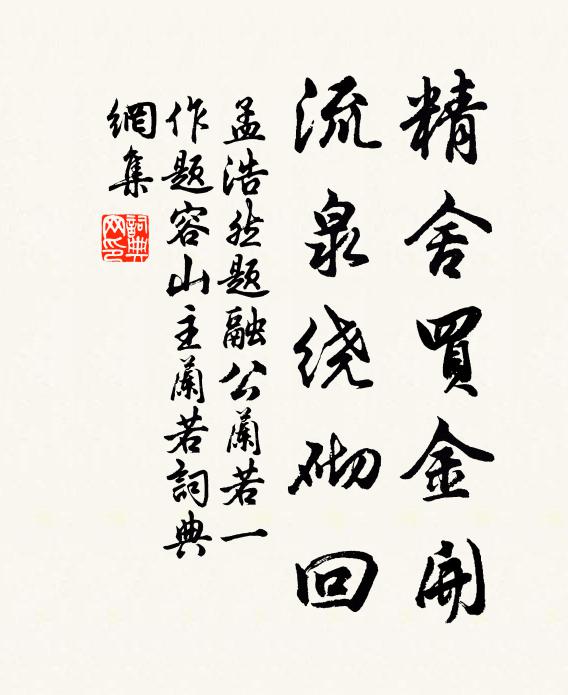 精舍買金開
流泉绕砌回
孟浩然题融公蘭若一
作题容山主蘭若詞典
網集
詞典
网印